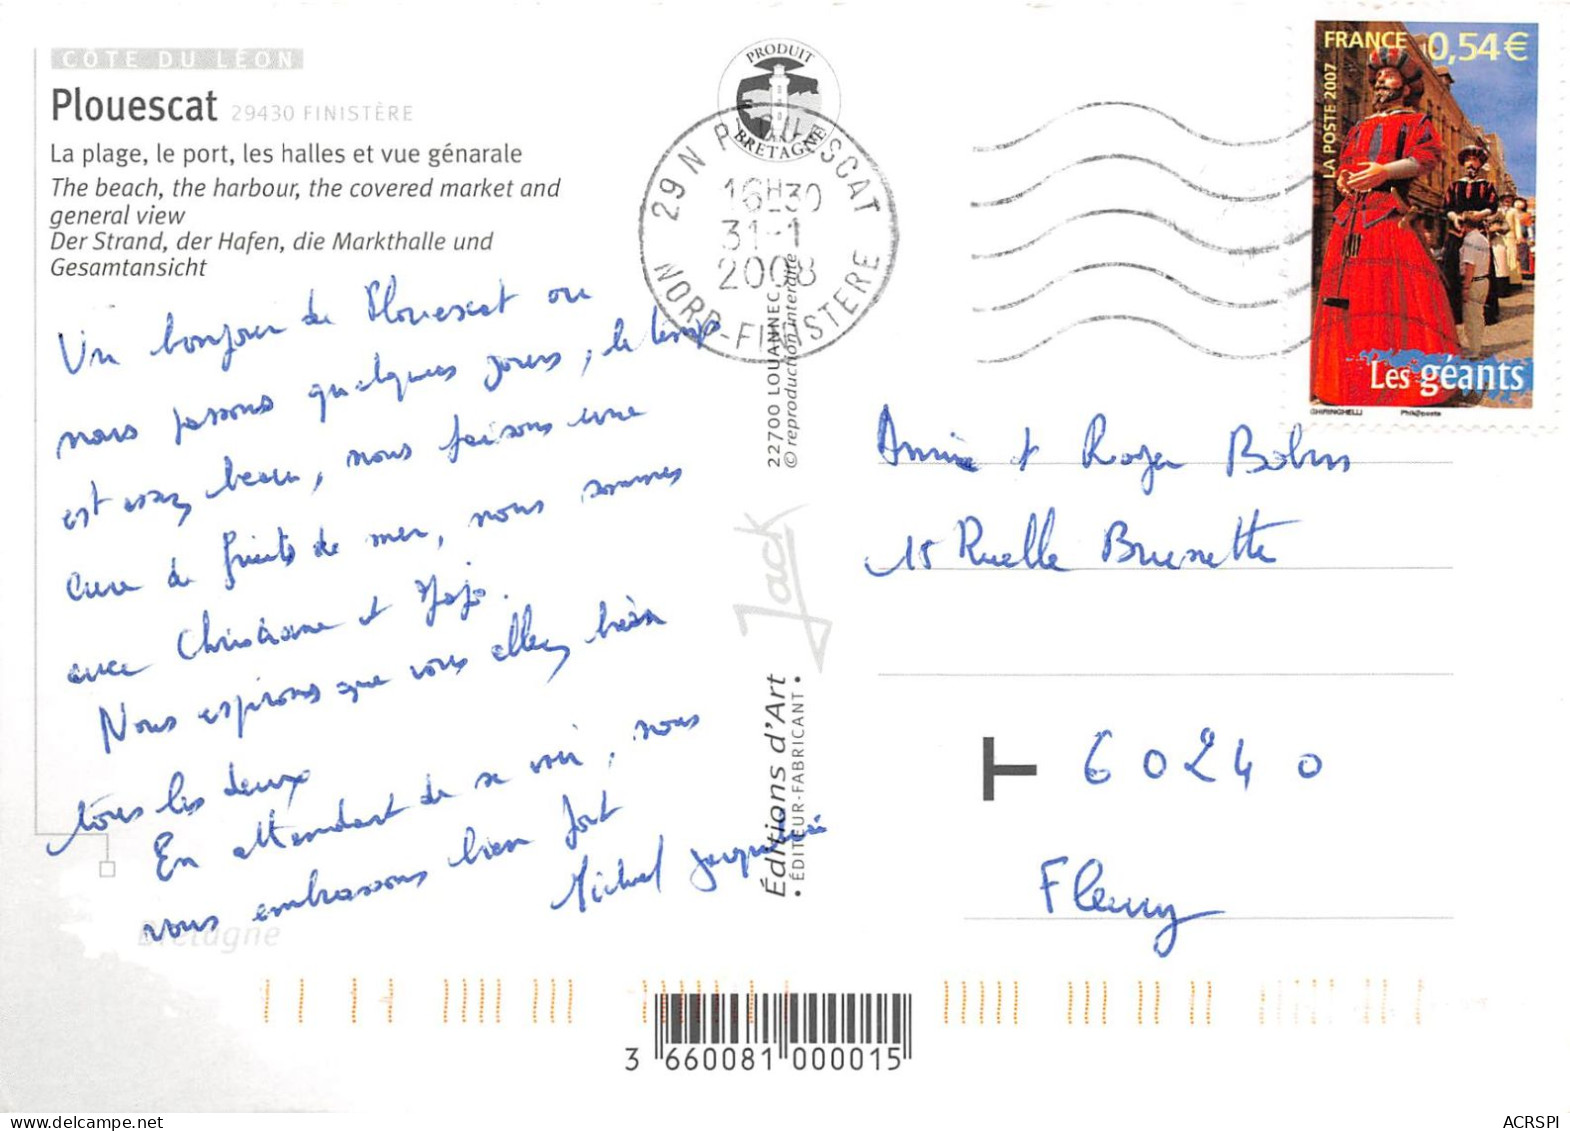 CÔTE DU LÉON
Plouescat 29430 FINISTÈRE
La plage, le port, les halles et vue génarale
The beach, the harbour, the covered market and
general view
Der Strand, der Hafen, die Markthalle und
Gesamtansicht
Un bonjour de Plouescat ou
nous passons quelques jours, le temps
est assez beau, nous faisons une
cure de fruits de mer, nous sommes
avec Christiane et Jojo.
Nous espérons que vous allez bien
tous les deux
En attendant de se voir, nous
vous embrassons bien fort
Michel Jacqueline
Bretagne
PRODUIT
BRETAGNE
29 N PLOUESCAT
16H30
31-1
2008
NORD-FINISTERE
22700 LOUANNEC
© reproduction interdite
Jack
Éditions d'Art
• ÉDITEUR-FABRICANT •
FRANCE 0,54€
LA POSTE 2007
Les géants
GHIRINGHELLI Phil@poste
Annie et Roger
15 Ruelle Brunette
T 60240
Fleury
3 660081 000015
ACRSPI